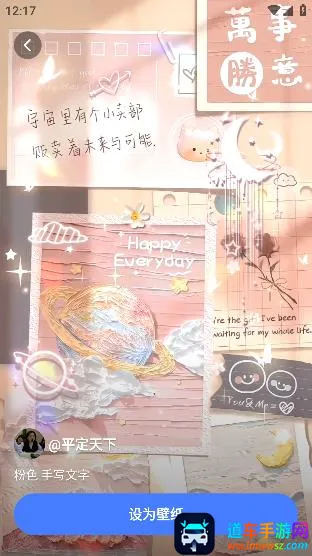 12:17
萬事
勝意
宇宙里有个小卖部
贩卖着未来与可能.
Happy
Everyday
're the gift I've been
waiting for my whole life.
You & Me =
@平定天下
粉色 手写文字
设为壁纸
道东手游网